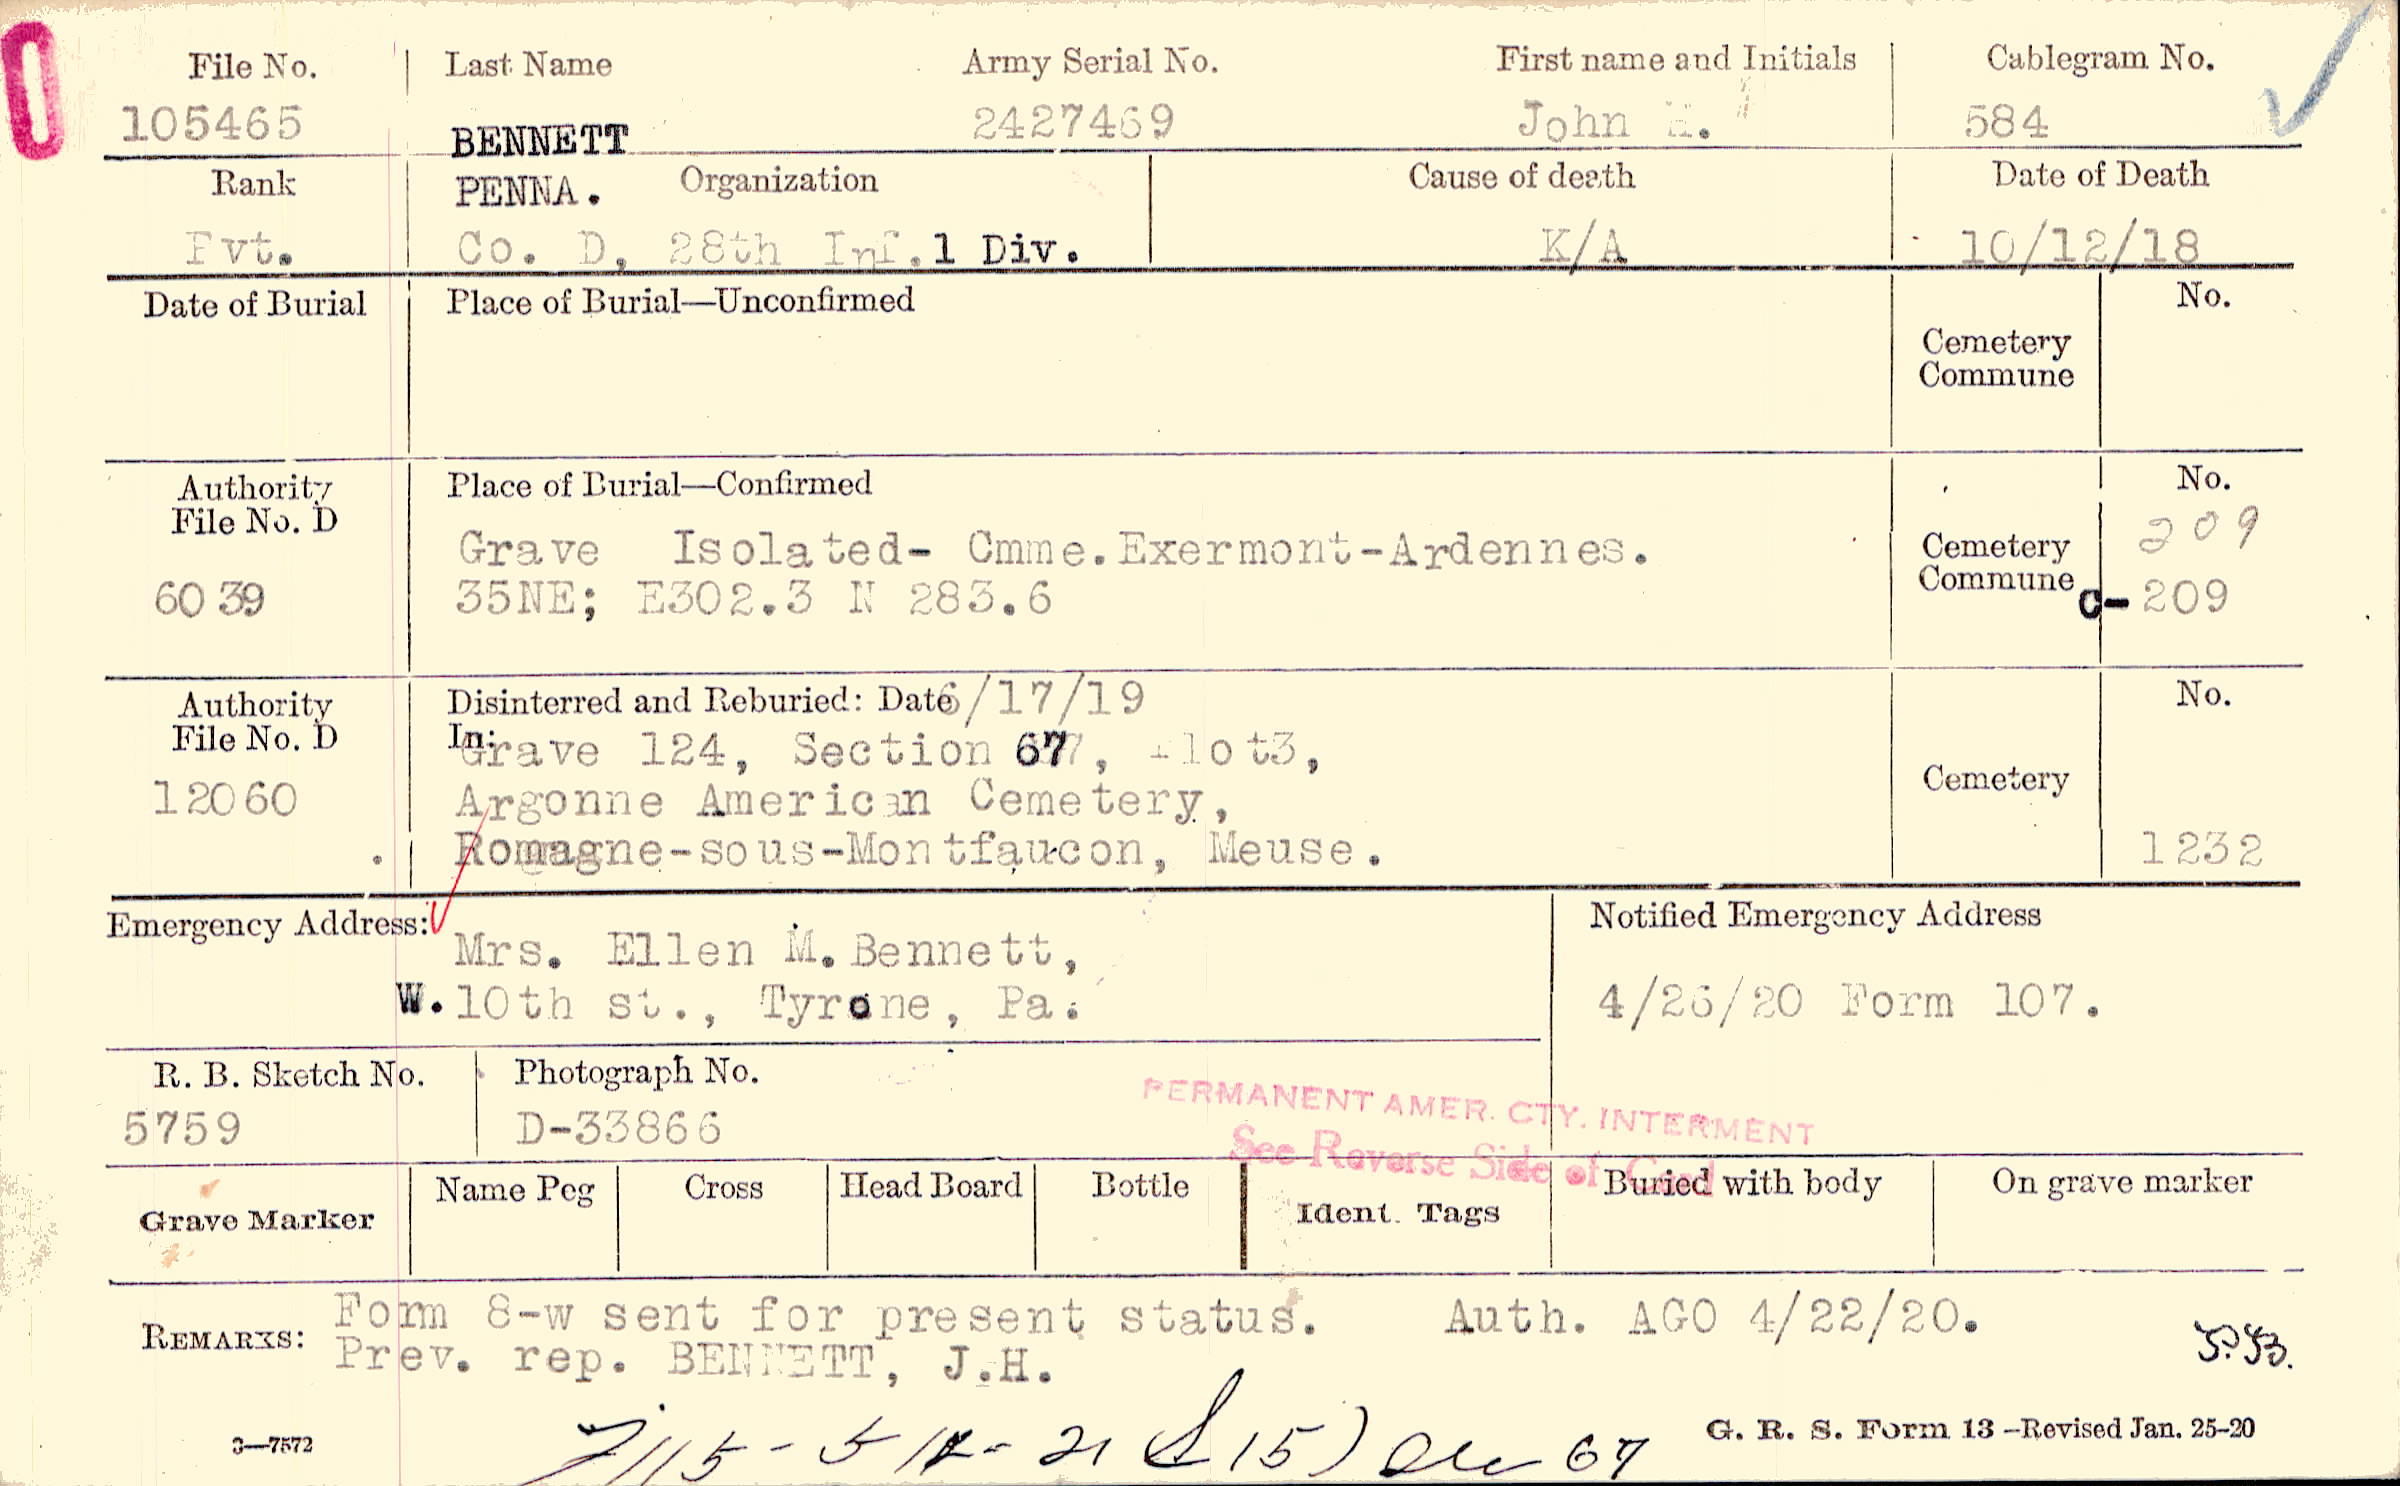 File No. Last Name Army Serial No. First name and Initials Cablegram No.
105465 BENNETT 2427469 John H. 584
Rank PENNA. Organization Cause of death Date of Death
Pvt. Co. D, 28th Inf. 1 Div. K/A 10/12/18
Date of Burial Place of Burial—Unconfirmed No.
Cemetery
Commune
Authority Place of Burial—Confirmed No.
File No. D 209
Grave Isolated- Cmme. Exermont-Ardennes. Cemetery
6039 35NE; E302.3 N 283.6 Commune C-209
Authority Disinterred and Reburied: Date 6/17/19 No.
File No. D In: Grave 124, Section 67, Plot3,
12060 Argonne American Cemetery, Cemetery
Romagne-sous-Montfaucon, Meuse. 1232
Emergency Address: Notified Emergency Address
Mrs. Ellen M. Bennett,
W. 10th st., Tyrone, Pa. 4/26/20 Form 107.
R. B. Sketch No. Photograph No.
5759 D-33866
PERMANENT AMER. CTY. INTERMENT
See Reverse Side of Card
Grave Marker Name Peg Cross Head Board Bottle Ident. Tags Buried with body On grave marker
REMARKS: Form 8-w sent for present status. Auth. AGO 4/22/20.
Prev. rep. BENNETT, J.H.
3—7572 G. R. S. Form 13 —Revised Jan. 25-20
15) 67